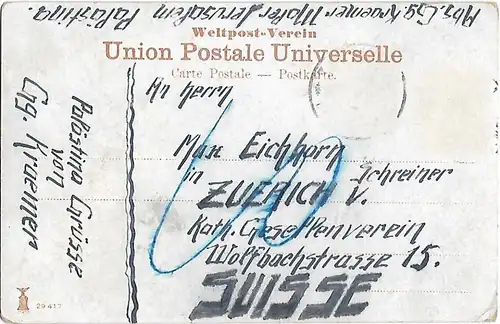 Abs. Eg. Kraemer Maler Jerusalem Palästina
Weltpost-Verein
Union Postale Universelle
Carte Postale — Postkarte.
An Herrn
Max Eichhorn
Schreiner
in
ZUERICH V.
Kath. Gesellenverein
Wolfbachstrasse 15.
SUISSE
Palästina Grüsse
von
Eg. Kraemer
29417